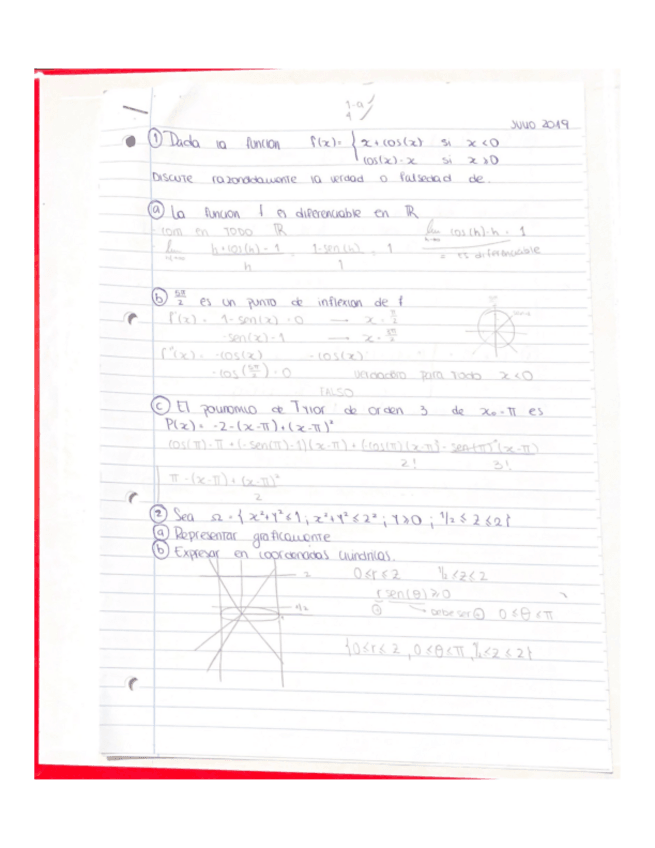 JULIO 2019
① Dada la función f(x) = { x + cos(x) si x < 0
cos(x) - x si x ≥ 0
Discute razonadamente la verdad o falsedad de.
ⓐ La función f es diferenciable en ℝ
en TODO ℝ
lim h + cos(h) - 1 / h = 1 - sen(h) / 1 = 1
lim cos(h) - h - 1
= es diferenciable
ⓑ 5π/2 es un punto de inflexion de f
f'(x) = 1 - sen(x) = 0 → x = π/2
-sen(x) - 1 → x =
f''(x) = -cos(x) -cos(x)
-cos(5π/2) = 0 verdadero para todo x < 0
FALSO
ⓒ El polinomio de Taylor de orden 3 de x₀ = π es
P(x) = -2 - (x - π) + (x - π)²
cos(π) - π + (-sen(π) - 1)(x - π) +
2! 3!
π - (x - π) + (x - π)²
2
② Sea Ω = { x² + y² ≤ 1 ; x² + y² ≤ z² ; y ≥ 0 ; 1/2 ≤ z ≤ 2 }
ⓐ Representar graficamente
ⓑ Expresar en coordenadas cilindricas.
0 ≤ r ≤ z 1/2 ≤ z ≤ 2
r sen(θ) ≥ 0
debe ser ⊕ 0 ≤ θ ≤ π
2
1/2
{ 0 ≤ r ≤ z , 0 ≤ θ ≤ π , 1/2 ≤ z ≤ 2 }